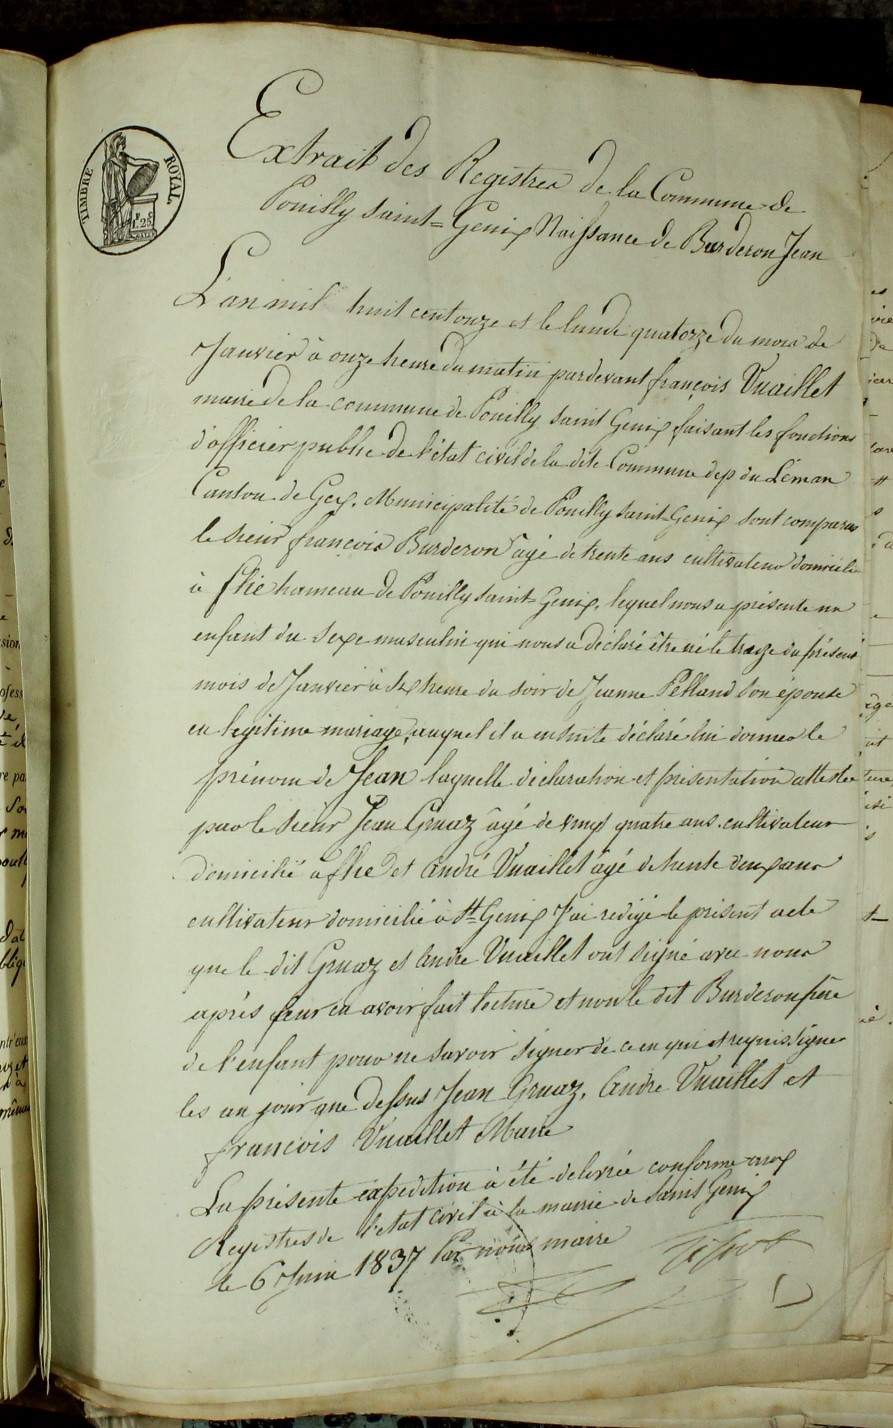 TIMBRE ROYAL
1F. 25C
Extrait des Registres de la Commune de
Pouilly Saint=Genix Naissance de Burderon Jean
L'an mil huit cent onze et le lundi quatorze du mois de
Janvier à onze heure du matin pardevant françois Vuaillet
maire de la commune de Pouilly Saint Genix faisant les fonctions
d'officier public de l'état civil de la dite Commune dep du Léman
Canton de Gex. Municipalité de Pouilly Saint-Genix sont comparus
le sieur françois Burderon âgé de trente ans cultivateur domicilié
à flie hameau de Pouilly Saint-Genix, lequel nous a présenté un
enfant du sexe masculin qui nous a déclaré être né le treize du présent
mois de Janvier à heure du soir de Jeanne Pelland son épouse
en legitime mariage, auquel il a ensuite déclaré lui donner le
prénom de Jean laquelle déclaration et présentation attestée
par le sieur Jean Gruaz âgé de vingt quatre ans cultivateur
domicilié à flie et André Vuaillet âgé de trente deux ans
cultivateur domicilié à St Genix J'ai rédigé le présent acte
que le dit Gruaz et André Vuaillet ont signé avec nous
après leur en avoir fait lecture et non le dit Burderon père
de l'enfant pour ne savoir signer de ce enquis et requis. Signé
les an jour que dessus Jean Gruaz, André Vuaillet et
françois Vuaillet Maire
La présente expedition à été delivrée conforme aux
Registres de l'etat civil à la mairie de Saint Genix
le 6 Juin 1837 Par nous maire